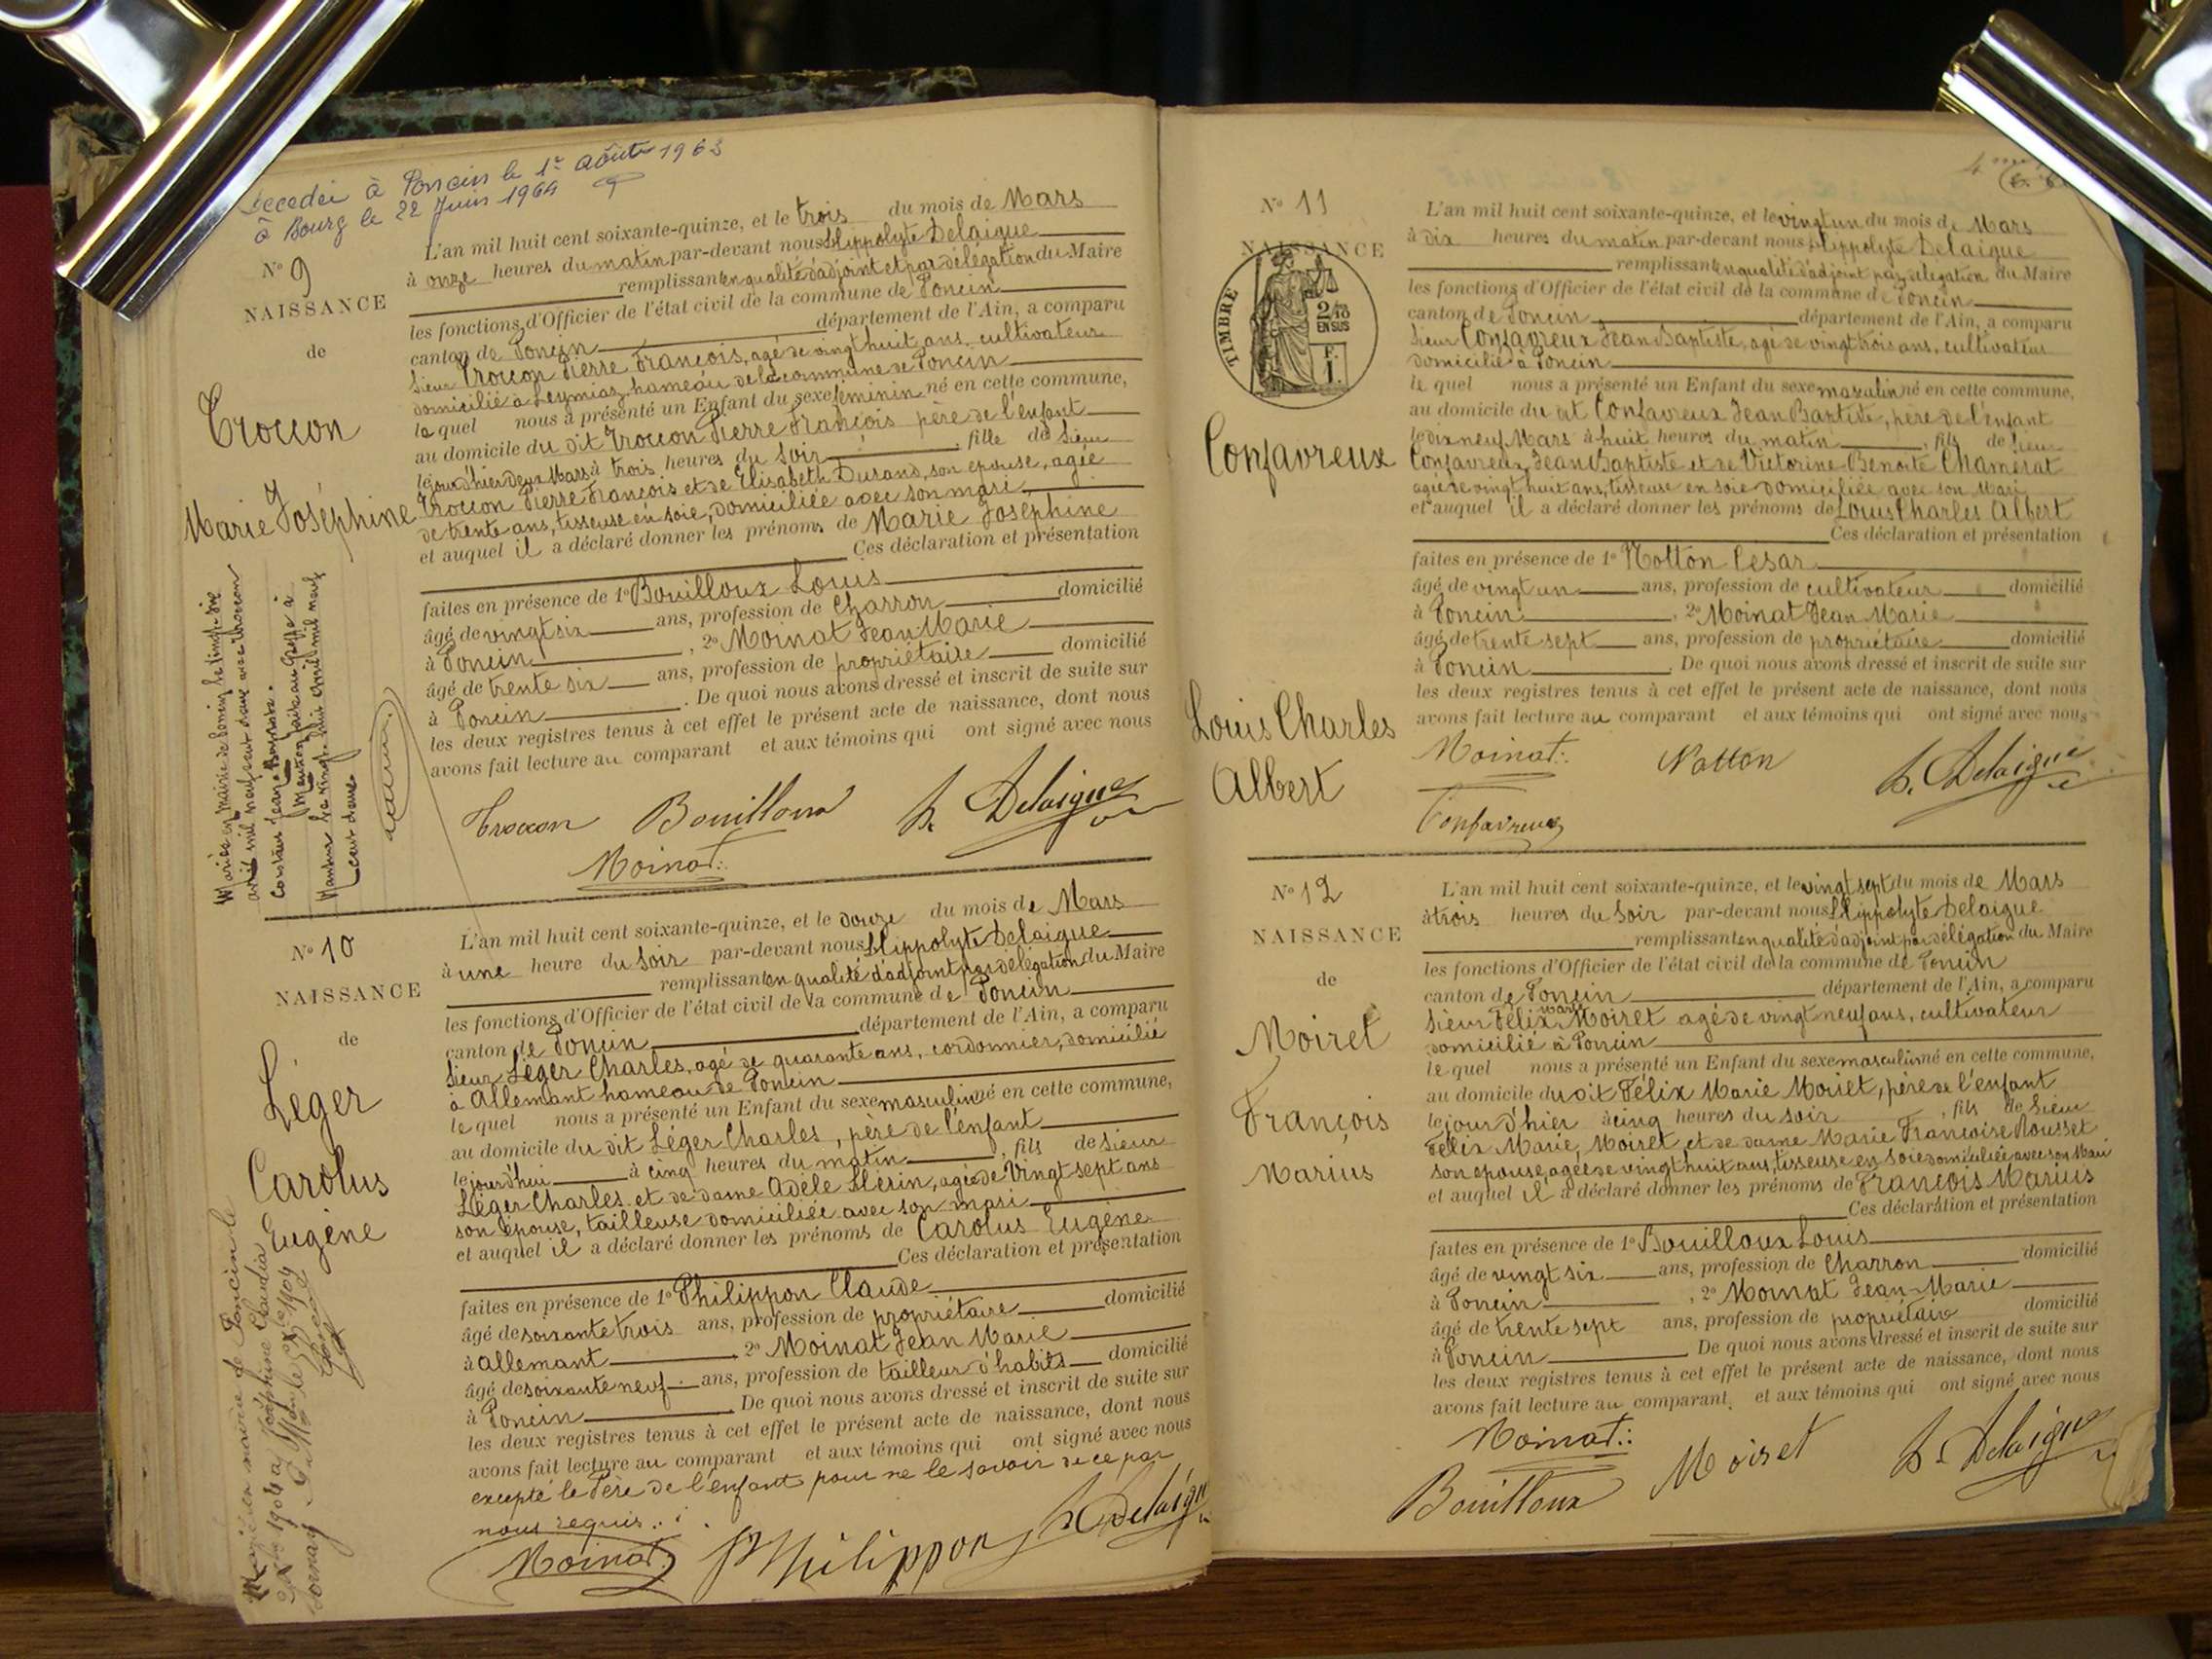 à Poncin le 1er août 1963
à Bourg le 22 Juin 1964
N° 9
NAISSANCE
de
Troccon
Marie Joséphine
L'an mil huit cent soixante-quinze, et le trois du mois de Mars
à onze heures du matin par-devant nous Hippolyte Delaigue
remplissant en qualité d'adjoint et par délégation du Maire
les fonctions d'Officier de l'état civil de la commune de Poncin
canton de Poncin département de l'Ain, a comparu
Sieur Troccon Pierre François, agé de vingt huit ans, cultivateur
domicilié à Leymiaz hameau de la commune de Poncin
le quel nous a présenté un Enfant du sexe féminin né en cette commune,
au domicile du dit Troccon Pierre François père de l'enfant
le jour d'hier deux Mars à trois heures du Soir, fille de Sieur
Troccon Pierre François et de Elisabeth Durand, son épouse, agée
de trente ans, tisseuse en soie, domiciliée avec son mari
et auquel il a déclaré donner les prénoms de Marie Joséphine
Ces déclaration et présentation
faites en présence de 1° Bouilloux Louis
âgé de vingt six ans, profession de Charron domicilié
à Poncin, 2° Moinat Jean Marie
âgé de trente six ans, profession de propriétaire domicilié
à Poncin. De quoi nous avons dressé et inscrit de suite sur
les deux registres tenus à cet effet le présent acte de naissance, dont nous
avons fait lecture au comparant et aux témoins qui ont signé avec nous
Troccon Bouilloux h. Delaigue
Moinat
N° 10
NAISSANCE
de
Léger
Carolus
Eugène
L'an mil huit cent soixante-quinze, et le douze du mois de Mars
à une heure du Soir par-devant nous Hippolyte Delaigue
remplissant en qualité d'adjoint par délégation du Maire
les fonctions d'Officier de l'état civil de la commune de Poncin
canton de Poncin département de l'Ain, a comparu
Sieur Léger Charles, agé de quarante ans, cordonnier, domicilié
à Allemant hameau de Poncin
le quel nous a présenté un Enfant du sexe masculin né en cette commune,
au domicile du dit Léger Charles, père de l'enfant
le jourd'hui à cinq heures du matin, fils de Sieur
Léger Charles et de dame Adèle Hérin, agée de Vingt sept ans
son épouse, tailleuse domiciliée avec son mari
et auquel il a déclaré donner les prénoms de Carolus Eugène
Ces déclaration et présentation
faites en présence de 1° Philippon Claude
âgé de soixante trois ans, profession de propriétaire domicilié
à Allemant 2° Moinat Jean Marie
âgé de soixante neuf ans, profession de tailleur d'habits domicilié
à Poncin. De quoi nous avons dressé et inscrit de suite sur
les deux registres tenus à cet effet le présent acte de naissance, dont nous
avons fait lecture au comparant et aux témoins qui ont signé avec nous
excepté le Père de l'enfant pour ne le savoir de ce par
nous requis.
Moinat Philippon h. Delaigue
N° 11
NAISSANCE
TIMBRE
2/10
EN SUS
Confavreux
Louis Charles
Albert
L'an mil huit cent soixante-quinze, et le vingt un du mois de Mars
à dix heures du matin par-devant nous Hippolyte Delaigue
remplissant en qualité d'adjoint par délégation du Maire
les fonctions d'Officier de l'état civil de la commune de Poncin
canton de Poncin département de l'Ain, a comparu
Sieur Confavreux Jean Baptiste, agé de vingt trois ans, cultivateur
domicilié à Poncin
le quel nous a présenté un Enfant du sexe masculin né en cette commune,
au domicile du dit Confavreux Jean Baptiste, père de l'enfant
le dix neuf Mars à huit heures du matin, fils de Sieur
Confavreux Jean Baptiste et de Victorine Benoite Chamerat
agée de vingt huit ans, tisseuse en soie domiciliée avec son Mari
et auquel il a déclaré donner les prénoms de Louis Charles Albert
Ces déclaration et présentation
faites en présence de 1° Notton Cesar
âgé de vingt un ans, profession de cultivateur domicilié
à Poncin, 2° Moinat Jean Marie
âgé de trente sept ans, profession de propriétaire domicilié
à Poncin. De quoi nous avons dressé et inscrit de suite sur
les deux registres tenus à cet effet le présent acte de naissance, dont nous
avons fait lecture au comparant et aux témoins qui ont signé avec nous
Moinat Notton h. Delaigue
Confavreux
N° 12
NAISSANCE
de
Moiret
François
Marius
L'an mil huit cent soixante-quinze, et le vingt sept du mois de Mars
à trois heures du Soir par-devant nous Hippolyte Delaigue
remplissant en qualité d'adjoint par délégation du Maire
les fonctions d'Officier de l'état civil de la commune de Poncin
canton de Poncin département de l'Ain, a comparu
Sieur Félix Marie Moiret agé de vingt neuf ans, cultivateur
domicilié à Poncin
le quel nous a présenté un Enfant du sexe masculin né en cette commune,
au domicile du dit Félix Marie Moiret, père de l'enfant
le jour d'hier à cinq heures du soir, fils de Sieur
Félix Marie Moiret et de dame Marie Françoise Rousset
son épouse, agée de vingt huit ans, tisseuse en soie domiciliée avec son Mari
et auquel il a déclaré donner les prénoms de François Marius
Ces déclaration et présentation
faites en présence de 1° Bouilloux Louis
âgé de vingt six ans, profession de Charron domicilié
à Poncin, 2° Moinat Jean Marie
âgé de trente sept ans, profession de propriétaire domicilié
à Poncin De quoi nous avons dressé et inscrit de suite sur
les deux registres tenus à cet effet le présent acte de naissance, dont nous
avons fait lecture au comparant et aux témoins qui ont signé avec nous
Moinat
Bouilloux Moiret h. Delaigue